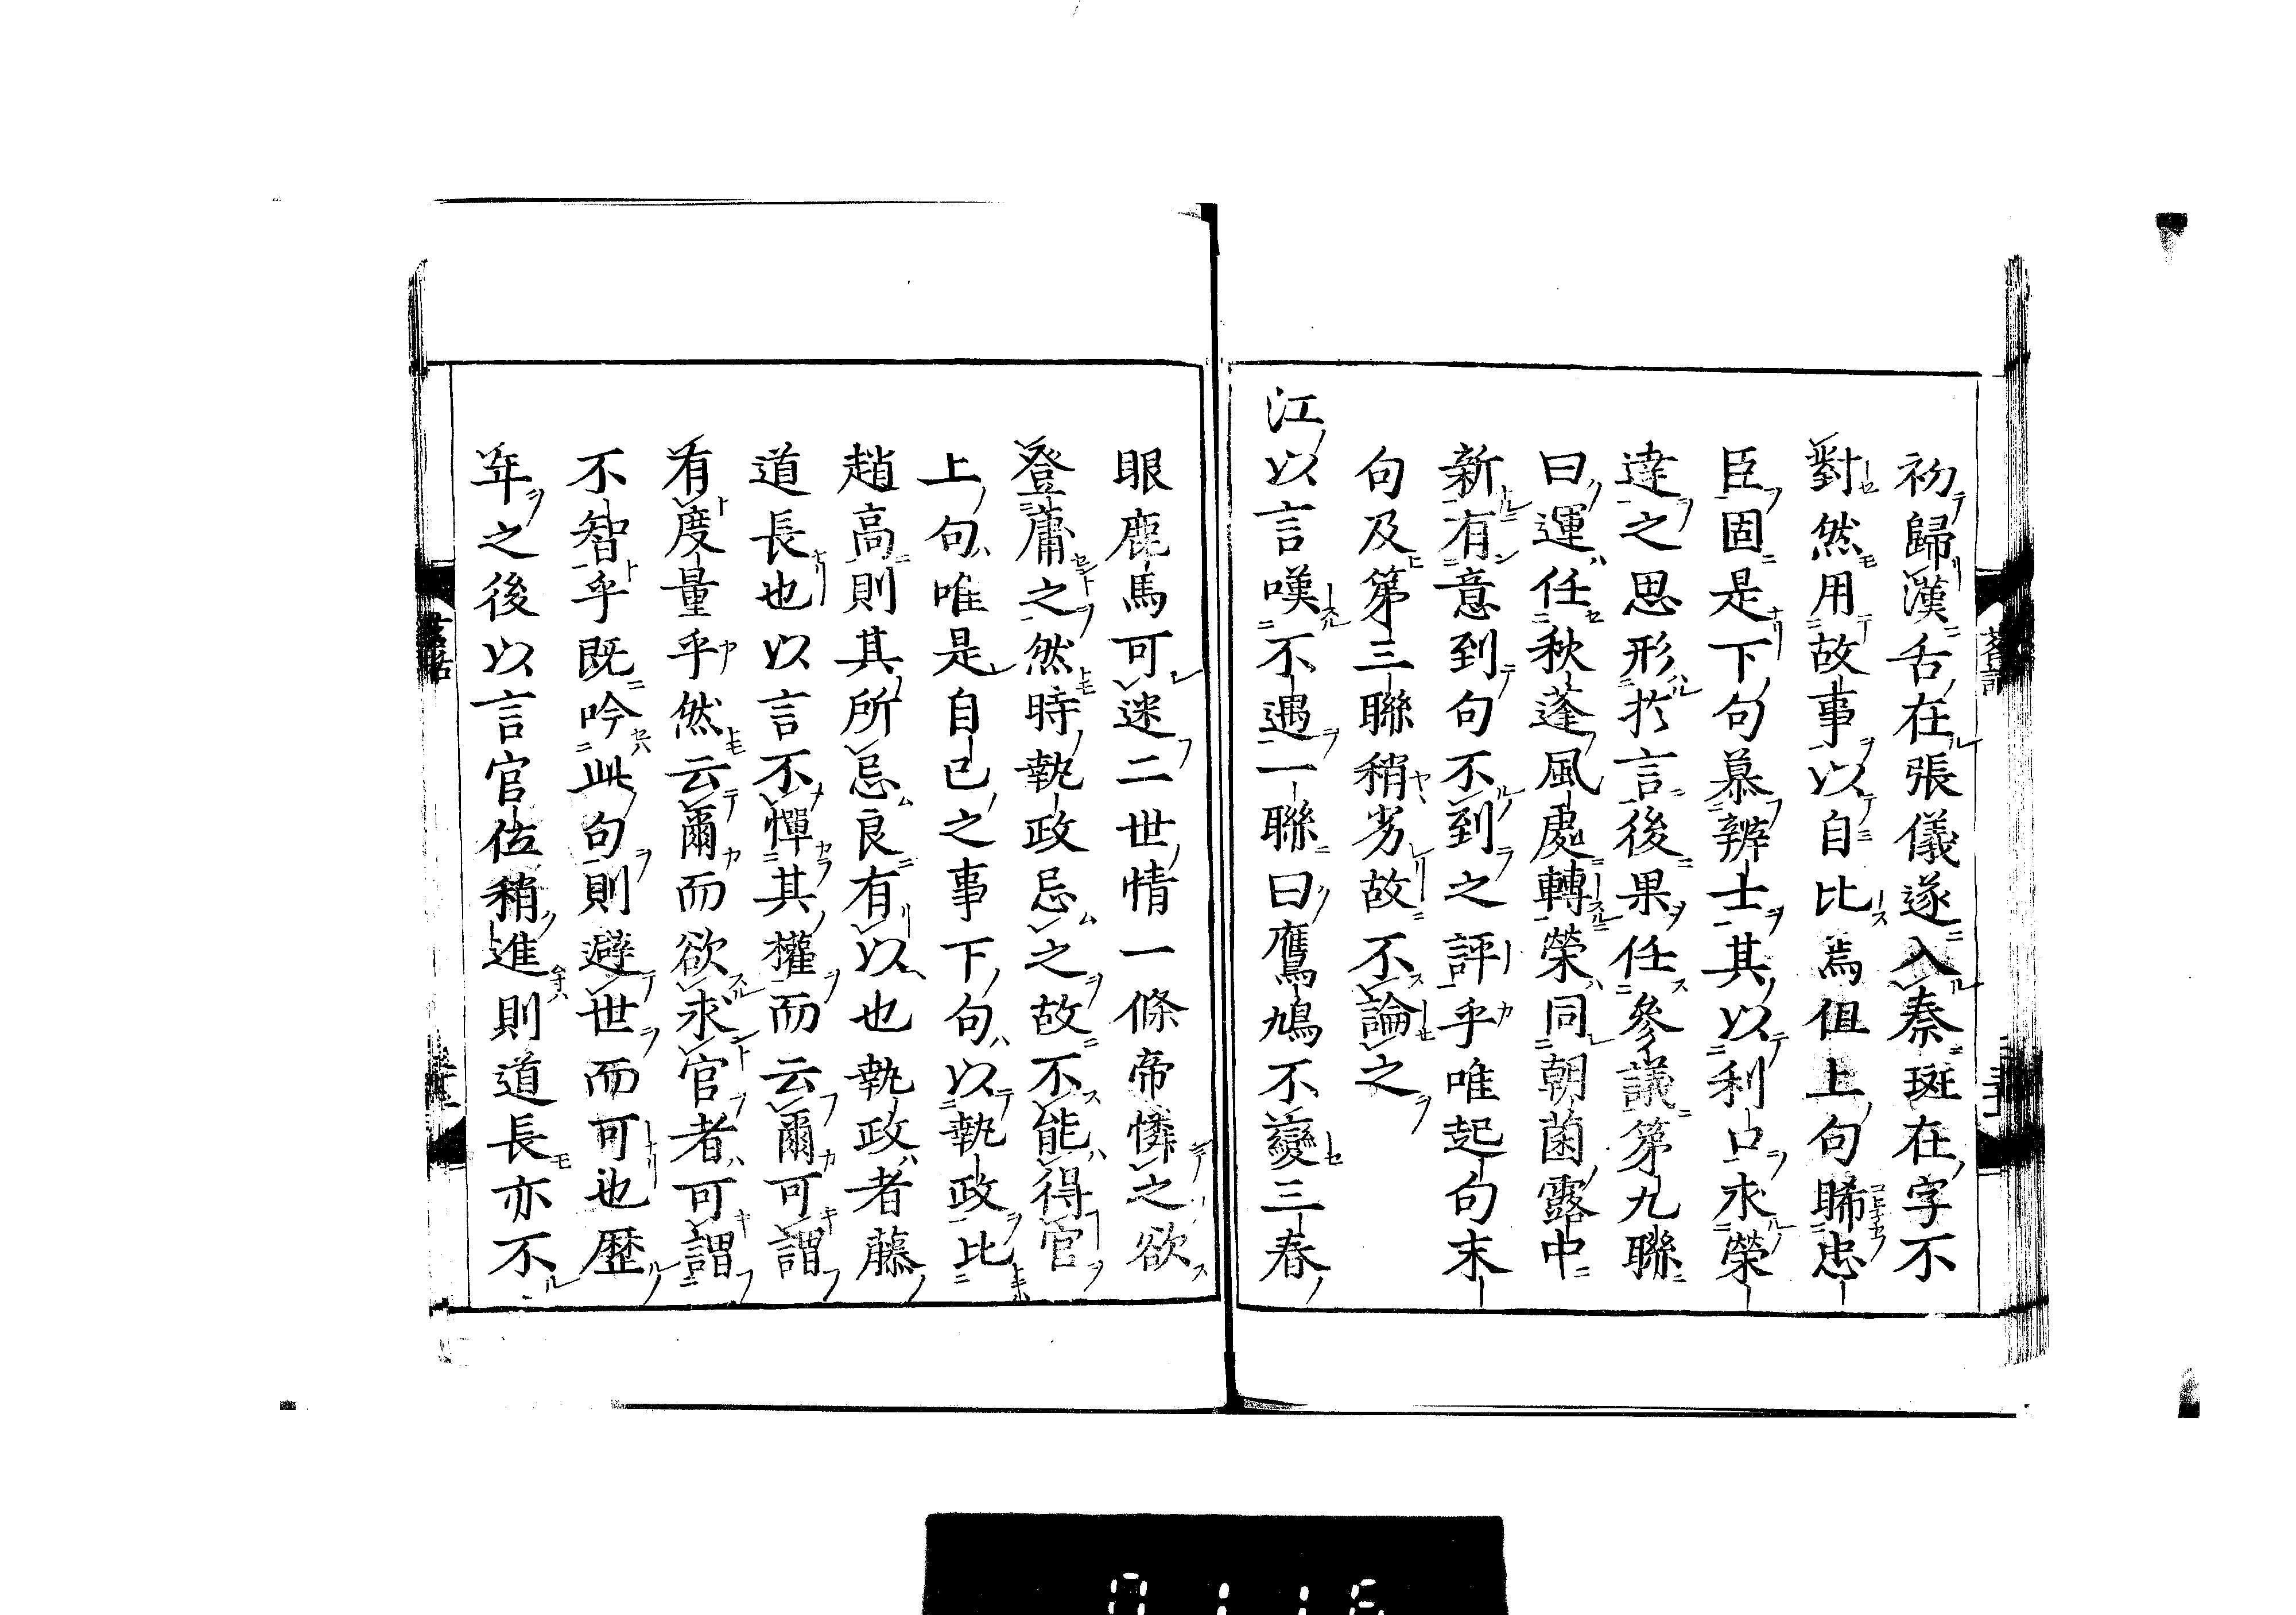 初歸漢舌在張儀遂入秦斑在字不
對然用故事以自比焉但上句睎忠
臣固是下句慕辨士其以利口求榮
達之思形於言後果任參議第九聯
曰運任秋蓬風處轉榮同朝菌露中
新有意到句不到之評乎唯起句末
句及第三聯稍劣故不論之
江以言嘆不遇一聯曰鷹鳩不變三春
眼鹿馬可迷二世情一條帝憐之欲
登庸之然時執政忌之故不能得官
上句唯是自己之事下句以執政比
趙高則其所忌良有以也執政者藤
道長也以言不憚其權而云爾可謂
有度量乎然云爾而欲求官者可謂
不智乎既吟此句則避世而可也歷
年之後以言官位稍進則道長亦不